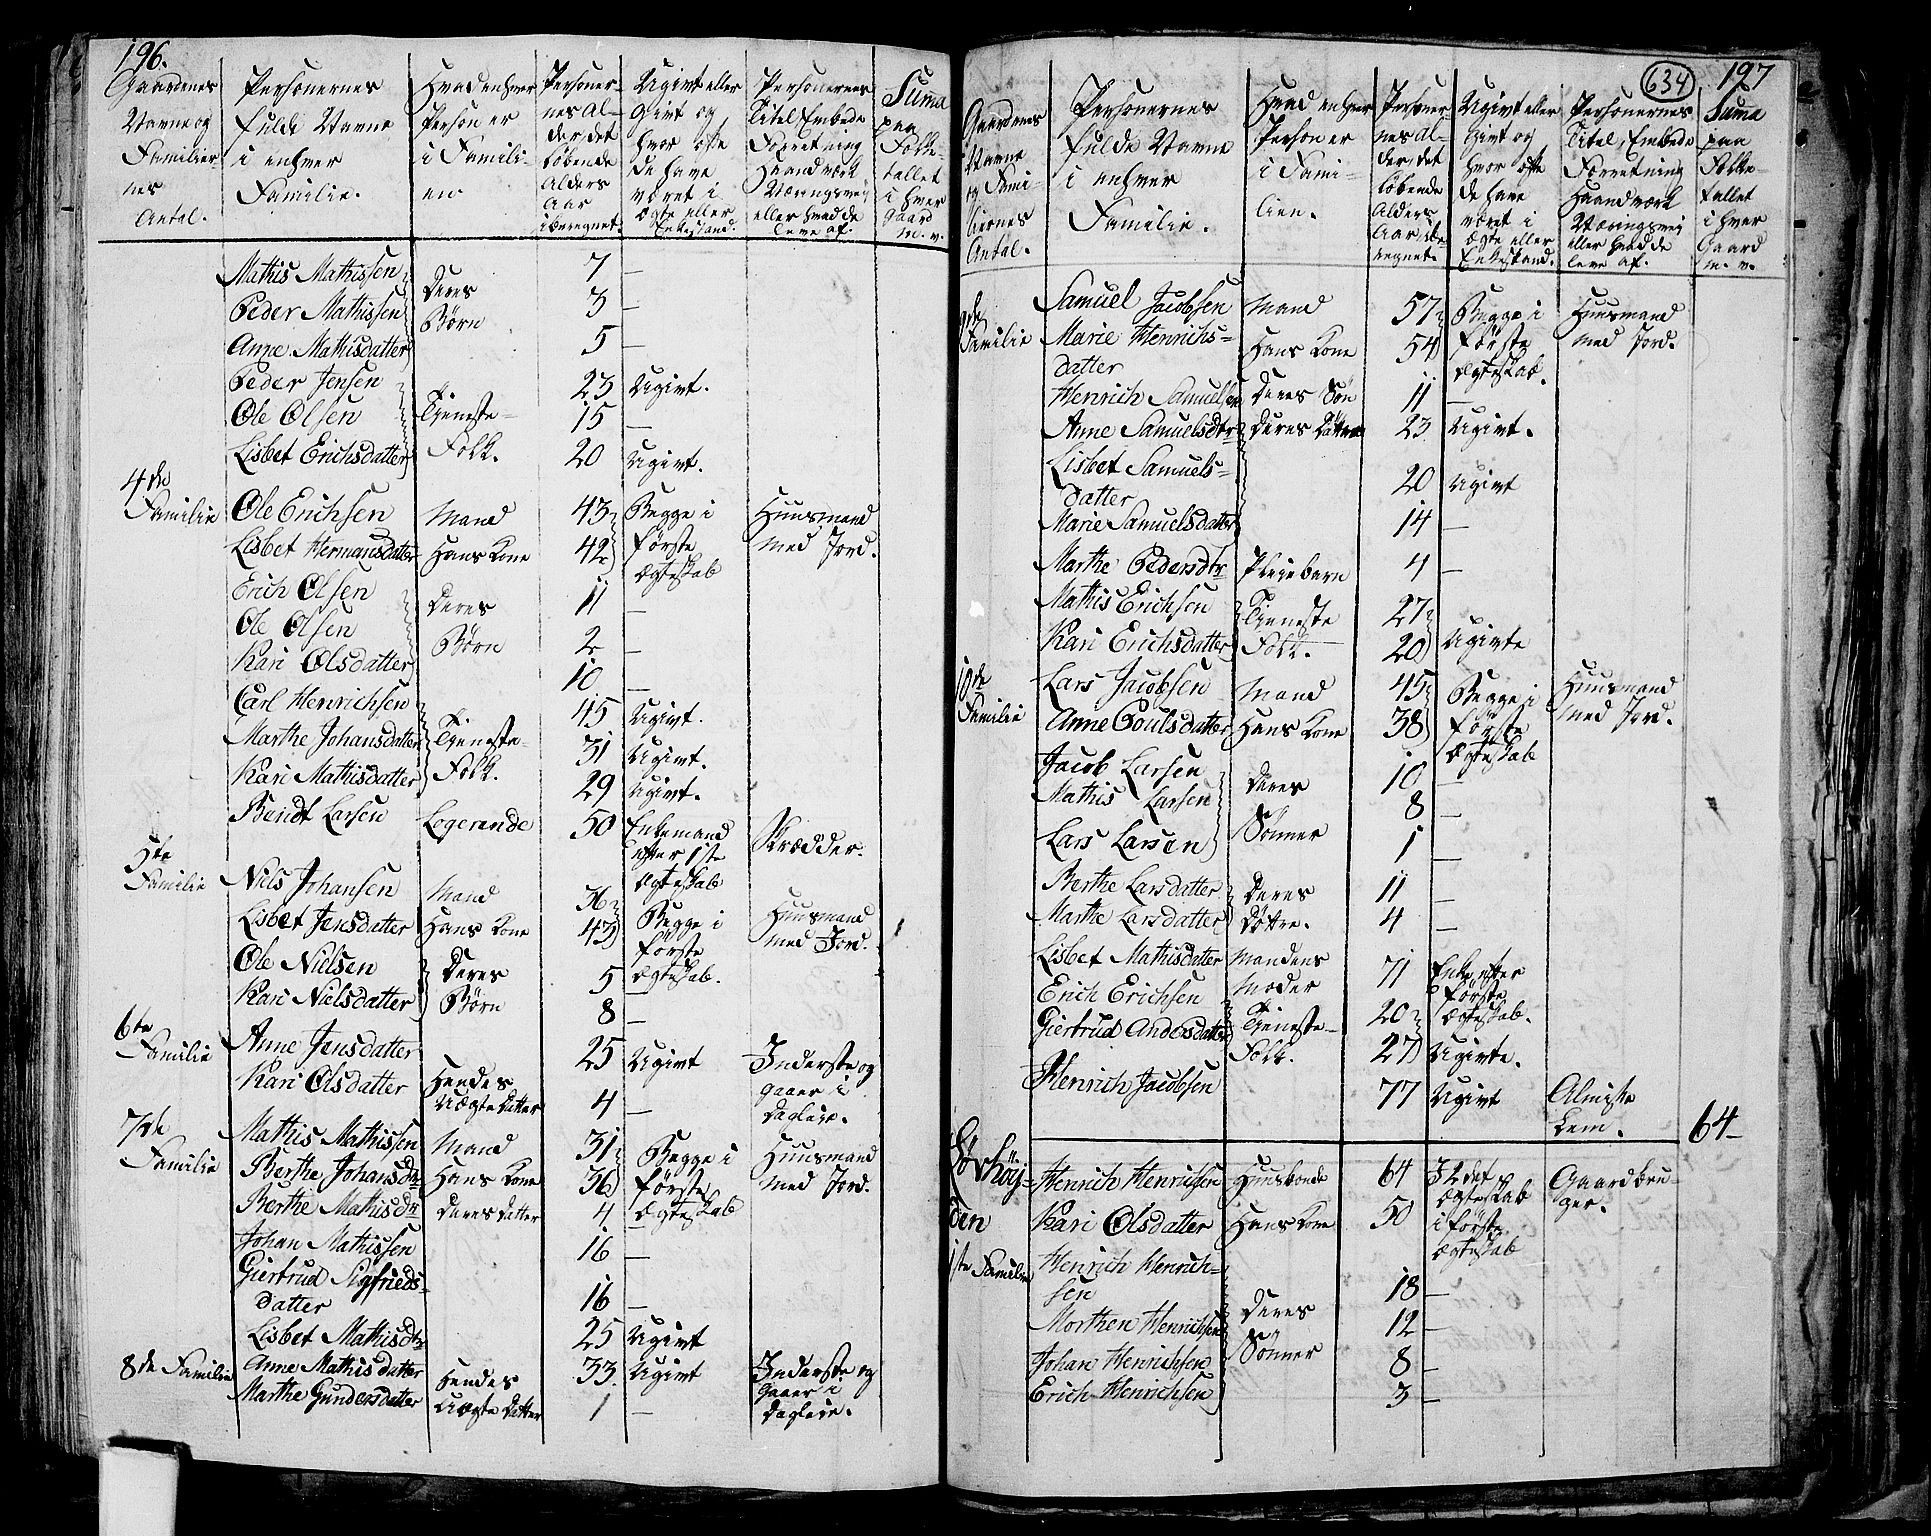 196.
Gaardenes Navne og Familiernes Antal. | Personernes fulde Navne i enhver Familie. | Hvad enhver Person er i Familien | Personernes Alder, det løbende Alders Aar iberegnet. | Ugivt eller Givt og hvor ofte de have været i Ægte eller Enkestand. | Personernes Titel, Embede Forretning Haandværk Næringsvej eller hvad de leve af. | Suma paa Folketallet i hver Gaard m. v.
Mathis Mathissen | Deres | 7 | —
Peder Mathissen | Børn | 3 | —
Anne Mathisdatter | 5 | —
Peder Jensen | 23 | Ugivt.
Ole Olsen | Tjeneste- | 15 | —
Lisbet Erichsdatter | Folk. | 20 | Ugivt.
4de Familie | Ole Erichsen | Mand | 43 | Begge i | Huusmand
Lisbet Hermansdatter | Hans Kone | 42 | første Ægteskab | med Jord.
Erich Olsen | Deres | 11 | —
Ole Olsen | Børn | 2 | —
Kari Olsdatter | 10 | —
Carl Henrichsen | 45 | Ugivt.
Marthe Johansdatter | Tjeneste- | 31 | Ugivt.
Kari Mathisdatter | Folk. | 29 | Ugivt.
Bendt Larsen | Logerende | 50 | Enkemand efter 1ste Ægteskab | Skrædder.
5te Familie | Niels Johansen | Mand | 36 | Begge i | Huusmand
Lisbet Jensdatter | Hans Kone | 43 | første Ægteskab. | med Jord.
Ole Nielsen | Deres | 5 | —
Kari Nielsdatter | Børn | 8 | —
6te Familie | Anne Jensdatter | 25 | Ugivt | Inderste og
Kari Olsdatter | Hendes Uægte Datter | 4 | — | gaaer i Dagleie.
7de Familie | Mathis Mathissen | Mand | 31 | Begge i | Huusmand
Berthe Johansdtr | Hans Kone | 36 | første | med Jord.
Berthe Mathisdtr | Deres Datter | 4 | Ægteskab
Johan Mathissen | 16 | —
Giertrud Sigfrieds-
datter | 16 | —
Lisbet Mathisdtr | 25 | Ugivt
8de Familie | Anne Mathisdatter | 33. | Ugivt | Inderste og
Marthe Gundersdatter | Hendes Uægte Datter | 1 | — | gaaer i Dagleie.
634
197
Gaardenes Navne og Familiernes Antal. | Personernes fulde Navne i enhver Familie. | Hvad enhver Person er i Familien. | Personernes Alder, det løbende Alders Aar iberegnet. | Ugivt eller Givt og hvor ofte de have været i Ægte eller Enkestand. | Personernes Titel, Embede Forretning Haandværk Næringsvej eller hvad de leve af. | Suma paa Folketallet i hver Gaard m. v.
9de Familie | Samuel Jacobsen | Mand | 57 | Begge i | Huusmand
Marie Henrichs-
datter | Hans Kone | 54 | første Ægteskab. | med Jord.
Henrich Samuelsen | Deres Søn | 11 | —
Anne Samuelsdtr | Deres Døttre | 23 | Ugivt.
Lisbet Samuels-
datter | 20 | Ugivt
Marie Samuelsdatter | 14 | —
Marthe Pedersdtr | Pleiebarn | 4 | —
Mathis Erichsen | Tjeneste | 27
Kari Erichsdatter | Folk. | 20 | Ugivte
10de Familie | Lars Jacobsen | Mand | 45 | Begge i | Huusmand
Anne Poulsdatter | Hans Kone | 38 | første Ægteskab | med Jord.
Jacob Larsen | Deres | 10 | —
Mathis Larsen | Sønner | 8 | —
Lars Larsen | 1 | —
Berthe Larsdatter | Deres | 11 | —
Marthe Larsdatter | Døtre. | 4 | —
Lisbet Mathisdatter | Mandens Moder | 71 | Enke efter første Ægteskab.
Erich Erichsen | Tjeneste- | 20
Giertrud Andersdatter | Folk. | 27 | Ugivte.
Henrich Jacobsen | 77 | Ugivt | Almisse Lem. | 64
Lørhøjden
1ste Familie | Henrich Henrichsen | Huusbonde | 64 | I 2det Ægteskab | Gaardbruger.
Kari Olsdatter | Hans Kone | 50 | i første Ægteskab
Henrich Henrich-
sen | 18 | —
Morthen Henrichsen | Deres | 12 | —
Johan Henrichsen | Sønner | 8 | —
Erich Henrichsen | 3 | —